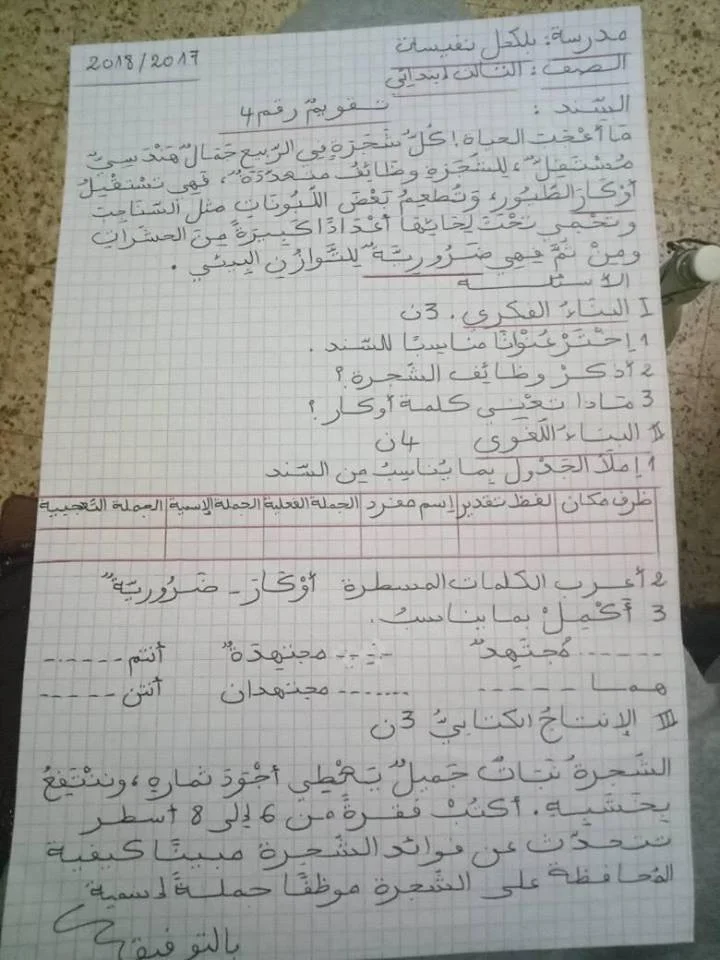 مدرسة: بلكحل نفيسة
2018/2017
الصف: الثالث ابتدائي
تقويم رقم 4
السّند :
مَا أعْجَبَ الحياة! كُلُّ شَجَرَةٍ فِي الرّبيع جَمَالٌ هَنْدَسِيٌّ
مُسْتَقِلٌّ، لِلشَّجَرَةِ وظَائِفُ متعدّدَةٌ، فَهِي تسْتَقْبِلُ
أَوْكَارَ الطُّيُورِ، وَتُطعِمُ بَعْضَ اللَّبُونَاتِ مثل السّنَاجِبَ
وتَحْمِي تَحْتَ لِحَائِهَا أعْدَادًا كَبِيرَةً مِنَ الحشَرَاتِ
ومِنْ ثَمَّ فهِيَ ضَرُورِيَّةٌ لِلتَّوَازُنِ البِيئِي .
الأسئلـــــــة
I البنَاءُ الفكري . 3ن
1 إخْتَرْ عُنْوَانًا مناسِبًا للسّند .
2 أذكرْ وظائِف الشّجرة ؟
3 مَاذا تعْنِي كلمة أوكار ؟
II البنَاءُ اللّغَوِي 4ن
1 إملَأ الجَدْول بِمَا يُنَاسِبُ مِن السّند
ظرف مكان | لفظ تقدير | إسم مفرد | الجملة الفعلية | الجملة الإسمية | الجملة التّعجبية
2 أعرب الكلمات المسطرة أوْكَارَ - ضَرُورِيَّةٌ
3 أكْمِلْ بِمَا يناسبُ.
------ مُجْتَهِدٌ ---- مجتهِدَةٌ أنتم ------
همـــا ------ ------- مجتهدان أنتن -----
III الإنتاجُ الكتابيُّ 3ن
الشّجرةُ نَبَاتٌ جَمِيلٌ يَعْطِي أجْوَدَ ثمارِهِ ، وننْتَفِعُ
بِخَشَبِهِ . أكتُبْ فقرةً من 6 إلى 8 أسطر
تتحدّث عن فوائد الشّجرة مبيّنًا كيفية
المُحافظة على الشّجرة موظّفًا جملةً إسمية
بالتوفيق